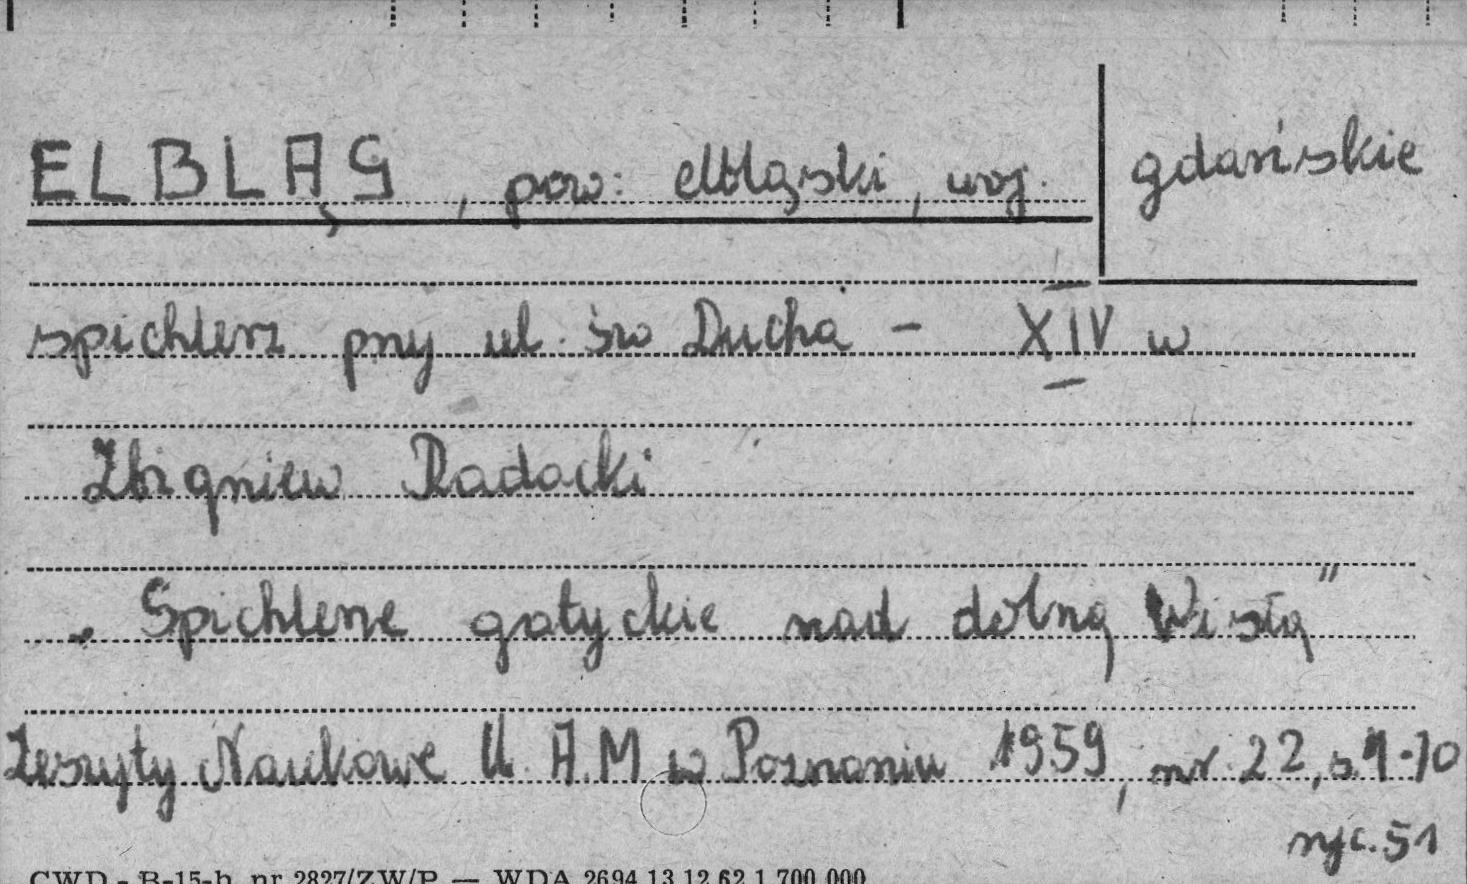 ELBLĄG, pow: elbląski, woj. gdańskie
spichlerz przy ul. św Ducha - XIV w
Zbigniew Radacki
„Spichlerze gotyckie nad dolną Wisłą"
Zeszyty Naukowe U. A. M w Poznaniu 1959, nr. 22, s. 1-70
ryc. 51
CWD - B-15-h nr 2827/ZW/P — WDA 2694 13.12.62 1.700.000